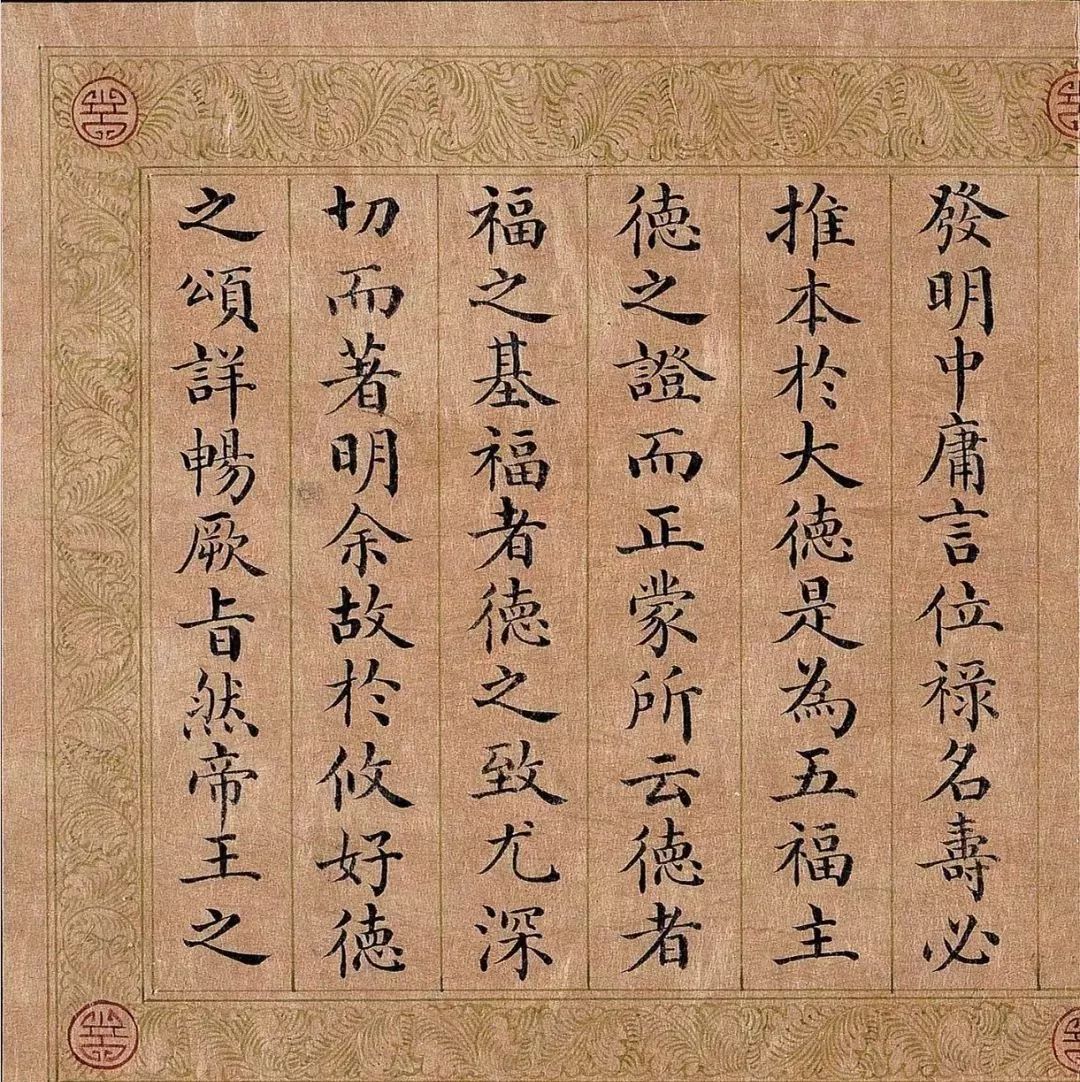 發明中庸言位祿名壽必
推本於大德是為五福主
德之證而正蒙所云德者
福之基福者德之致尤深
切而著明余故於攸好德
之頌詳暢厥旨然帝王之